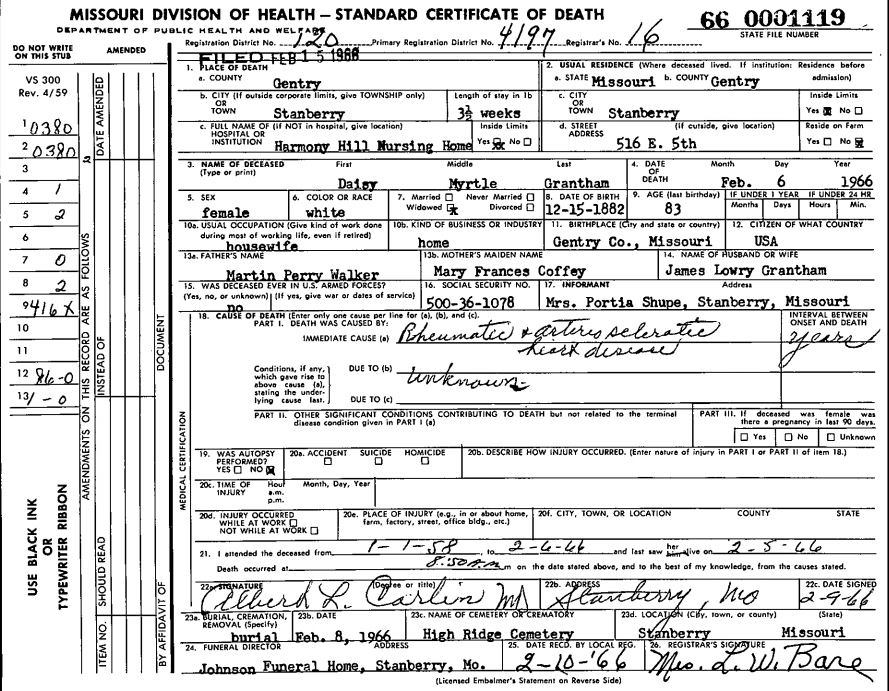 MISSOURI DIVISION OF HEALTH — STANDARD CERTIFICATE OF DEATH
66 0001119
DEPARTMENT OF PUBLIC HEALTH AND WELFARE
STATE FILE NUMBER
Registration District No. 120 Primary Registration District No. 4197 Registrar's No. 16
FILED FEB 15 1966
DO NOT WRITE ON THIS STUB
AMENDED
VS 300
Rev. 4/59
1 0380
2 0380
3
4 1
5 2
6
7 0
8 2
9 416X
10
11
12 86-0
13 1-0
USE BLACK INK
OR
TYPEWRITER RIBBON
DATE AMENDED
AMENDMENTS ON THIS RECORD ARE AS FOLLOWS
INSTEAD OF
SHOULD READ
ITEM NO.
DOCUMENT
BY AFFIDAVIT OF
MEDICAL CERTIFICATION
1. PLACE OF DEATH
a. COUNTY
Gentry
2. USUAL RESIDENCE (Where deceased lived. If institution: Residence before admission)
a. STATE Missouri b. COUNTY Gentry
b. CITY (If outside corporate limits, give TOWNSHIP only)
OR
TOWN Stanberry
Length of stay in 1b
3½ weeks
c. CITY
OR
TOWN Stanberry
Inside Limits
Yes No
c. FULL NAME OF (If NOT in hospital, give location)
HOSPITAL OR
INSTITUTION Harmony Hill Nursing Home
Inside Limits
Yes No
d. STREET ADDRESS
(If outside, give location)
516 E. 5th
Reside on Farm
Yes No
3. NAME OF DECEASED
(Type or print)
First Middle Last
Daisy Myrtle Grantham
4. DATE OF DEATH
Month Day Year
Feb. 6 1966
5. SEX
female
6. COLOR OR RACE
white
7. Married Never Married
Widowed Divorced
8. DATE OF BIRTH
12-15-1882
9. AGE (last birthday)
83
IF UNDER 1 YEAR
Months Days
IF UNDER 24 HR
Hours Min.
10a. USUAL OCCUPATION (Give kind of work done during most of working life, even if retired)
housewife
10b. KIND OF BUSINESS OR INDUSTRY
home
11. BIRTHPLACE (City and state or country)
Gentry Co., Missouri
12. CITIZEN OF WHAT COUNTRY
USA
13a. FATHER'S NAME
Martin Perry Walker
13b. MOTHER'S MAIDEN NAME
Mary Frances Coffey
14. NAME OF HUSBAND OR WIFE
James Lowry Grantham
15. WAS DECEASED EVER IN U.S. ARMED FORCES?
(Yes, no, or unknown) (If yes, give war or dates of service)
no
16. SOCIAL SECURITY NO.
500-36-1078
17. INFORMANT Address
Mrs. Portia Shupe, Stanberry, Missouri
18. CAUSE OF DEATH (Enter only one cause per line for (a), (b), and (c).
PART I. DEATH WAS CAUSED BY:
IMMEDIATE CAUSE (a) Rheumatic & arteriosclerotic
heart disease
INTERVAL BETWEEN ONSET AND DEATH
years
Conditions, if any, which gave rise to above cause (a), stating the underlying cause last.
DUE TO (b) unknown
DUE TO (c)
PART II. OTHER SIGNIFICANT CONDITIONS CONTRIBUTING TO DEATH but not related to the terminal disease condition given in PART I (a)
PART III. If deceased was female was there a pregnancy in last 90 days.
Yes No Unknown
19. WAS AUTOPSY PERFORMED?
YES NO
20a. ACCIDENT SUICIDE HOMICIDE
20b. DESCRIBE HOW INJURY OCCURRED. (Enter nature of injury in PART I or PART II of item 18.)
20c. TIME OF INJURY
Hour Month, Day, Year
a.m.
p.m.
20d. INJURY OCCURRED
WHILE AT WORK
NOT WHILE AT WORK
20e. PLACE OF INJURY (e.g., in or about home, farm, factory, street, office bldg., etc.)
20f. CITY, TOWN, OR LOCATION COUNTY STATE
21. I attended the deceased from 1-1-58, to 2-6-66 and last saw her him alive on 2-5-66
Death occurred at 8:50 m on the date stated above, and to the best of my knowledge, from the causes stated.
22a. SIGNATURE (Degree or title)
Albert L. Carlin MD
22b. ADDRESS
Stanberry, Mo
22c. DATE SIGNED
2-9-66
23a. BURIAL, CREMATION, REMOVAL (Specify)
burial
23b. DATE
Feb. 8, 1966
23c. NAME OF CEMETERY OR CREMATORY
High Ridge Cemetery
23d. LOCATION (City, town, or county) (State)
Stanberry Missouri
24. FUNERAL DIRECTOR ADDRESS
Johnson Funeral Home, Stanberry, Mo.
25. DATE RECD. BY LOCAL REG.
2-10-'66
26. REGISTRAR'S SIGNATURE
Mrs. L. W. Bare
(Licensed Embalmer's Statement on Reverse Side)